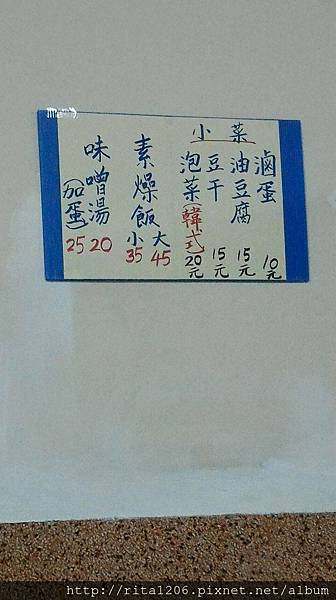 小菜
滷蛋 10元
油豆腐 15元
豆干 15元
泡菜(韓式) 20元
素燥飯 大45 小35
味噌湯 20
(加蛋) 25
http://rita1206.pixnet.net/album